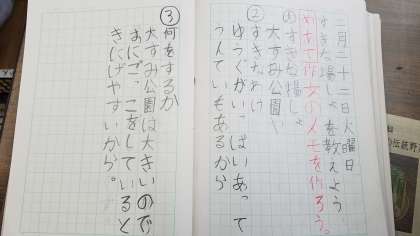 二月二十二日火曜日
すきな場しょを教えよう
めあて作文のメモを作ろう。
①すきな場しょ
大すみ公園
②すきなわけ
ゆうぐがいっぱいあって
うんていもあるから
③何をするか
大すみ公園は大きいので
おにごっこをしていると
きにげやすいから。
の伝統野